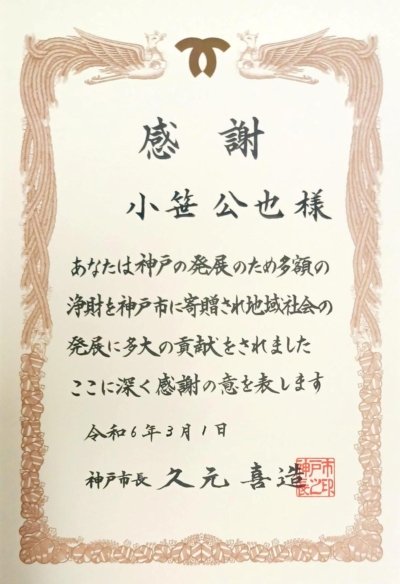 感謝
小笹公也様
あなたは神戸の発展のため多額の
浄財を神戸市に寄贈され地域社会の
発展に多大の貢献をされました
ここに深く感謝の意を表します
令和6年3月1日
神戸市長 久元喜造
神戸市長之印